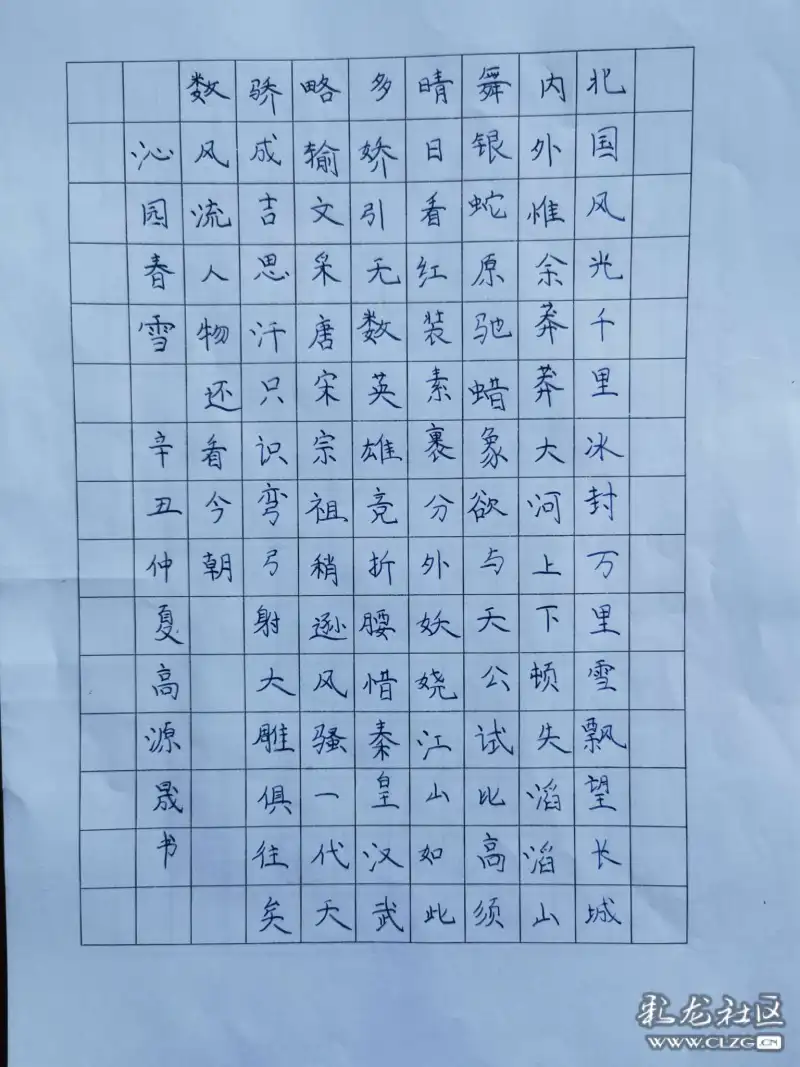 北国风光千里冰封万里雪飘望长城
内外惟余莽莽大河上下顿失滔滔山
舞银蛇原驰蜡象欲与天公试比高须
晴日看红装素裹分外妖娆江山如此
多娇引无数英雄竞折腰惜秦皇汉武
略输文采唐宋宗祖稍逊风骚一代天
骄成吉思汗只识弯弓射大雕俱往矣
数风流人物还看今朝
沁园春雪 辛丑仲夏高源晟书
乳龙社区
WWW.CLZG.CN